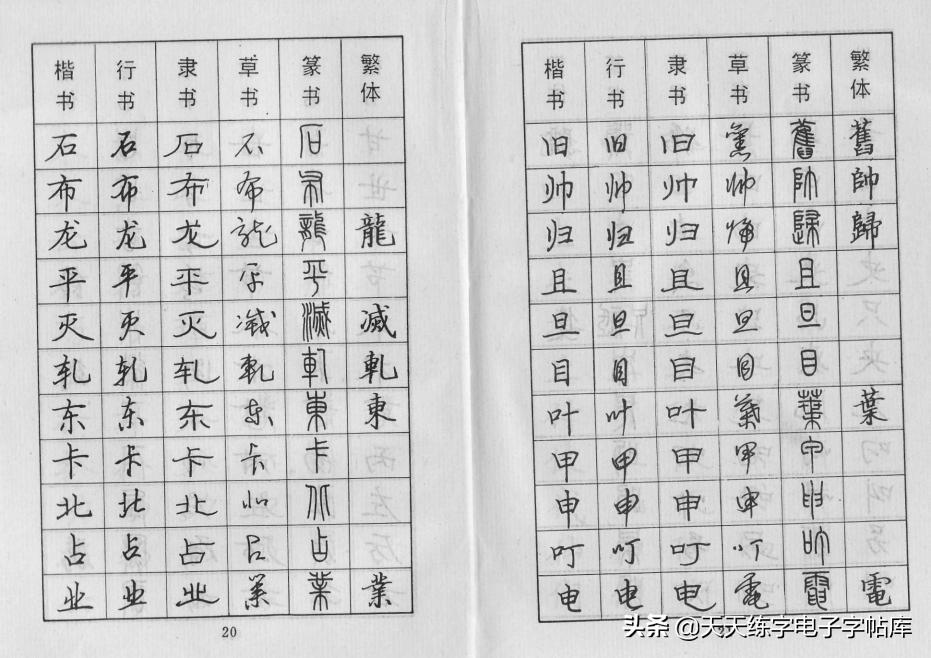 楷书 行书 隶书 草书 篆书 繁体
石 石 石 石 石
布 布 布 布 布
龙 龙 龙 龙 龍 龍
平 平 平 平 平
灭 灭 灭 滅 滅 滅
轧 轧 轧 軋 軋 軋
东 东 东 东 東 東
卡 卡 卡 卡 卡
北 北 北 北 北
占 占 占 占 占
业 业 业 業 業 業
20
楷书 行书 隶书 草书 篆书 繁体
旧 旧 旧 舊 舊 舊
帅 帅 帅 帅 帥 帥
归 归 归 归 歸 歸
且 且 且 且 且
旦 旦 旦 旦 旦
目 目 目 目 目
叶 叶 叶 葉 葉 葉
甲 甲 甲 甲 甲
申 申 申 申 申
叮 叮 叮 叮
电 电 电 電 電 電
头条 @天天练字电子字帖库